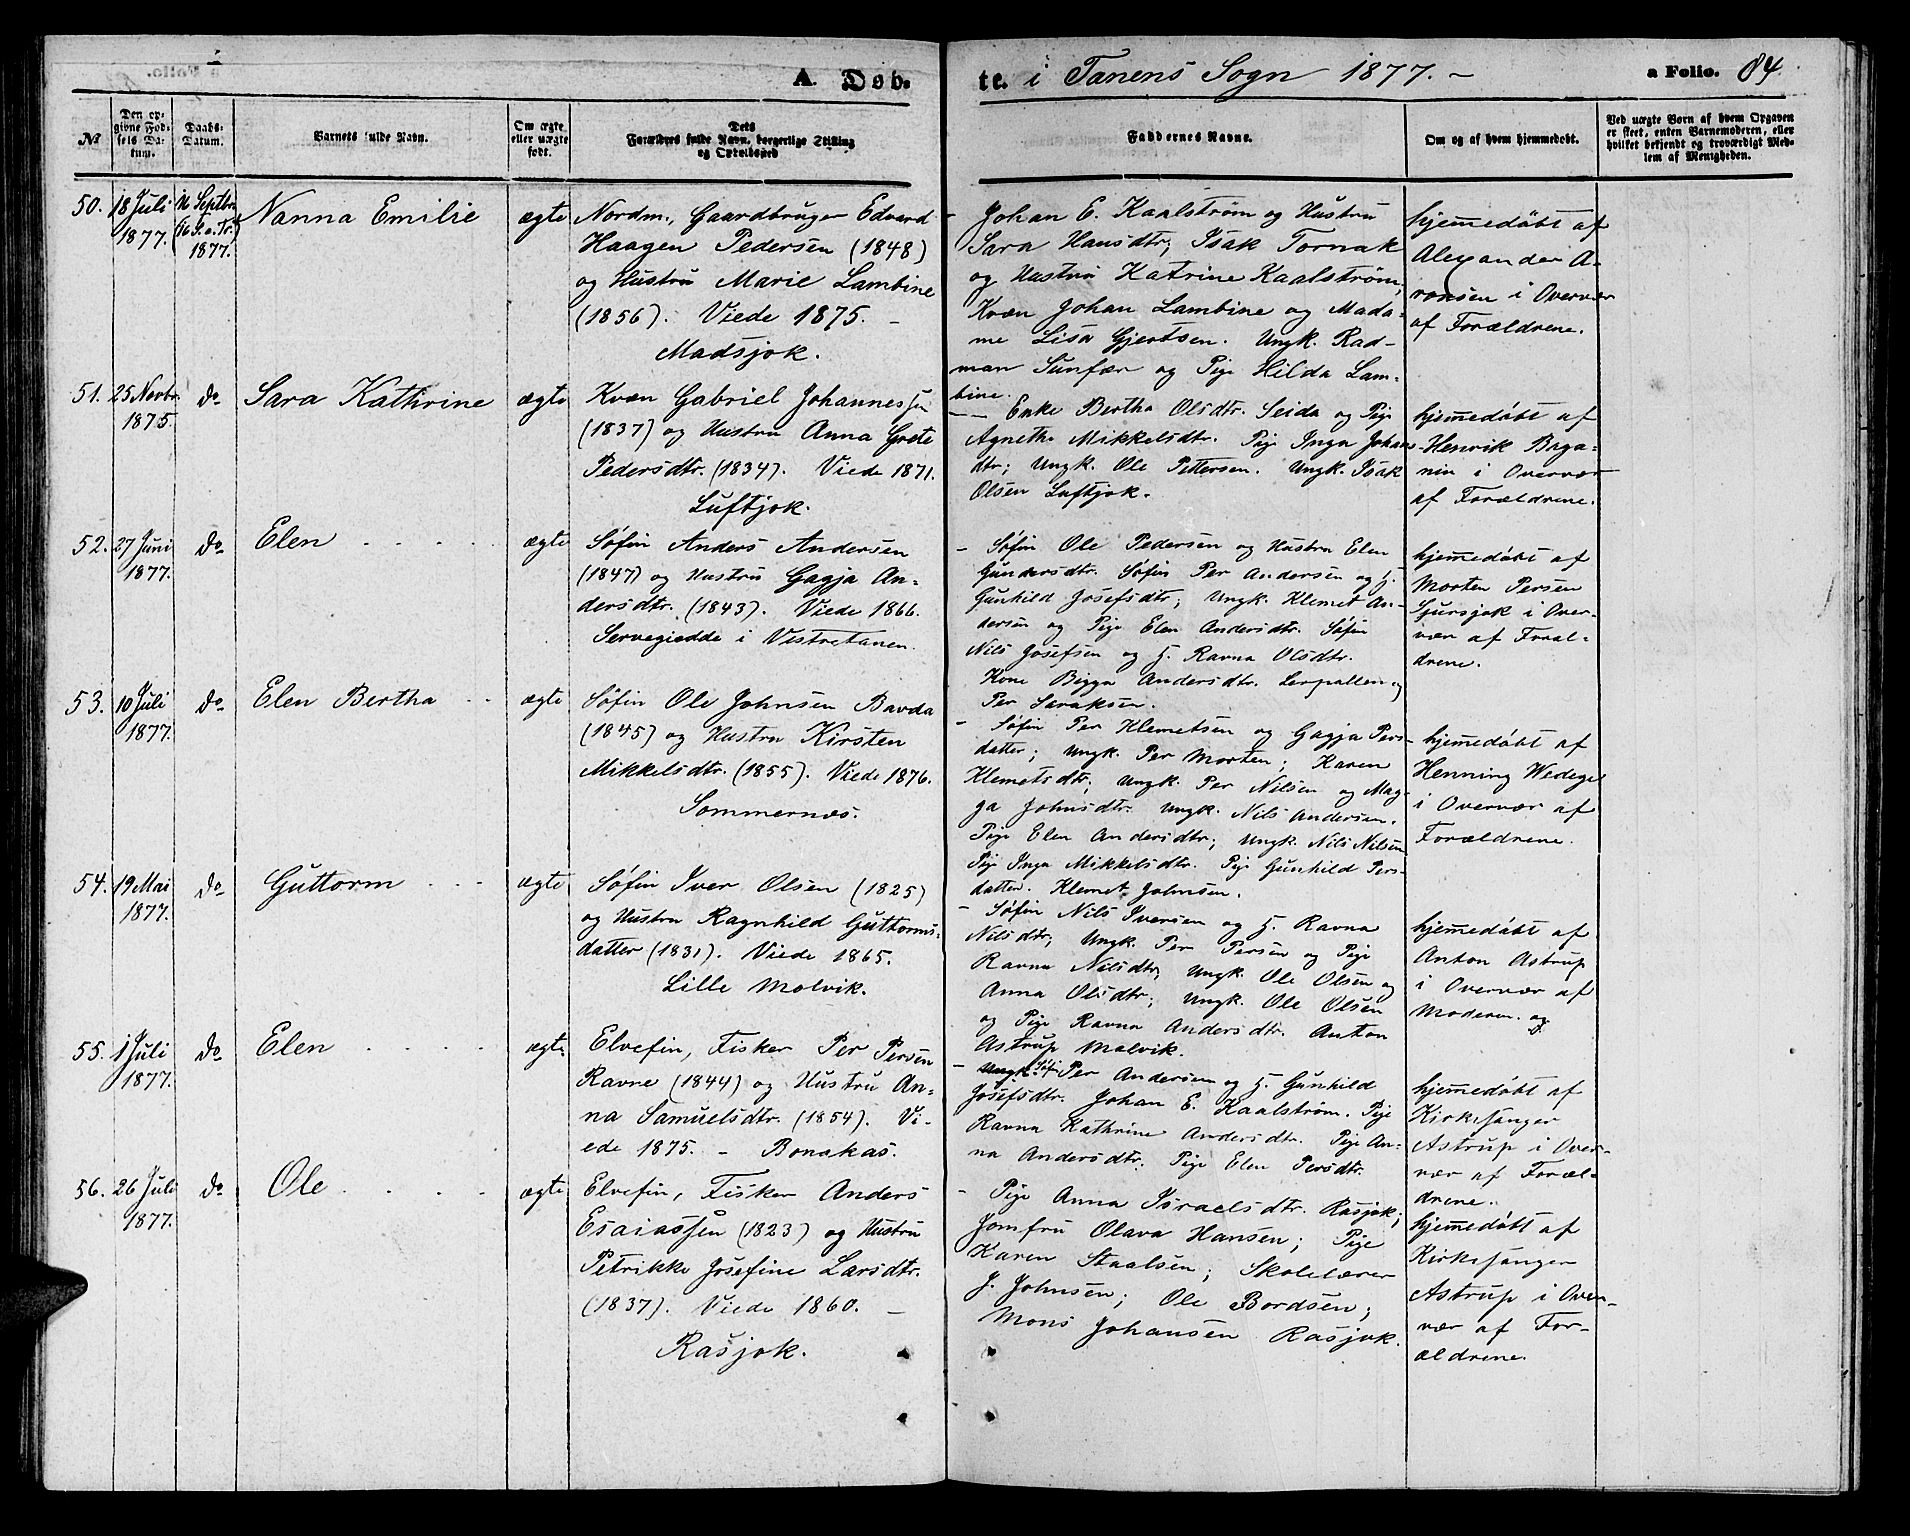 A. Døb.
te. i Tanens Sogn 1877. -
a Folio. 84.
№
Den opgivne Fødsels Datum.
Daabs-Datum.
Barnets fulde Navn.
Om ægte eller uægte født.
Dets Forældres fulde Navn, borgerlige Stilling og Opholdssted
Faddernes Navne.
Om og af hvem hjemmedøbt.
Ved uægte Børn af hvem Opgaven er skeet, enten Barnemoderen, eller hvilket bekjendt og troværdigt Medlem af Menigheden.
50.
18 Juli
1877.
16 Septbr
(16 S. a. Tr.)
1877.
Nanna Emilie
ægte
Nordm., Gaardbruger Edvard
Haagen Pedersen (1848)
og Hustru Marie Lambine
(1856). Viede 1875. -
Madsjok.
- Johan E. Kaalstrøm og Hustru
Sara Hansdtr; Isak Tornak
og Hustru Katrine Kaalstrøm;
Kvæn Johan Lambine og Mada-
me Lisa Gjertsen. Ungk. Rad-
man Sunfær og Pige Hilda Lam-
bine.
hjemmedøbt af
Alexander A-
ronsen i Overvær
af Forældrene.
51.
25 Novbr.
1875.
do
Sara Kathrine
ægte
Kvæn Gabriel Johannessen
(1837) og Hustru Anna Grete
Pedersdtr. (1834). Viede 1871.
Luftjok.
- - Enke Bertha Olsdtr. Seida og Pige
Agnethe Mikkelsdtr. Pige Inga Johans-
dtr; Ungk. Ole Pettersen. Ungk. Isak
Olsen Luftjok.
hjemmedøbt af
Henrik Baga-
nin i Overvær
af Forældrene.
52.
27 Juni
1877.
do
Elen . . . . .
ægte
Søfin Anders Andersen
(1847) og Hustru Gagja An-
dersdtr. (1843). Viede 1866.
Servegiedde i Vestretanen.
- Søfin Ole Pedersen og Hustru Elen
Gundersdtr. Søfin Per Andersen og H.
Gunhild Josefsdtr; Ungk. Klemet An-
dersen og Pige Elen Andersdtr. Søfin
Nils Josefsen og H. Ravna Olsdtr.
Kone Bigga Andersdtr. Lerpollen og
Per Saraksen.
hjemmedøbt af
Morten Persen
Sjursjok i Over-
vær af Foræl-
drene.
53.
10 Juli
1877.
do
Elen Bertha . .
ægte
Søfin Ole Johnsen Bavda
(1845) og Hustru Kirsten
Mikkelsdtr. (1855). Viede 1876.
Sommernæs.
- Søfin Per Klemetsen og Gagja Pers-
datter; Ungk. Per Morten; Karen
Klemetsdtr; Ungk. Per Nilsen og Mag-
ga Johnsdtr. Ungk. Nils Andersen.
Pige Elen Andersdtr; Ungk. Nils Nilsen
Pige Inga Mikkelsdtr. Pige Gunhild Pers-
datter. Klemet Johnsen.
hjemmedøbt af
Henning Wedege
i Overvær af
Forældrene.
54.
19 Mai
1877.
do
Guttorm . . .
ægte
Søfin Iver Olsen (1825)
og Hustru Ragnhild Guttorms-
datter (1831). Viede 1865.
Lille Molvik.
- Søfin Nils Iversen og H. Ravna
Nilsdtr; Ungk. Per Persen og Pige
Ravna Nilsdtr; Ungk. Ole Olsen og
Anna Olsdtr; Ungk. Ole Olsen
og Pige Ravna Andersdtr. Anton
Astrup Molvik.
hjemmedøbt af
Anton Astrup
i Overvær af
Moderen. og
55.
1 Juli
1877.
do
Elen . . . . .
ægte
Elvefin, Fisker Per Persen
Ravne (1844) og Hustru An-
na Samuelsdtr. (1854). Vi-
ede 1875. - Bonakas.
- Ungk. Søfin Per Andersen og H. Gunhild
Josefsdtr. Johan E. Kaalstrøm. Pige
Ravna Kathrine Andersdtr. Pige An-
na Andersdtr; Pige Elen Persdtr.
hjemmedøbt af
Kirkesanger
Astrup i Over-
vær af Foræl-
drene.
56.
26 Juli
1877.
do
Ole . . . .
ægte
Elvefin, Fisker Anders
Esaiassen (1823) og Hustru
Petrikke Josefine Larsdtr.
(1837). Viede 1860. -
Rasjok.
- Pige Anna Israelsdtr. Rasjok;
Jomfru Olava Hansen; Pige
Karen Staalsen; Skolelærer
J. Johnsen; Ole Bordsen;
Mons Johansen Rasjok.
hjemmedøbt af
Kirkesanger
Astrup i Over-
vær af For-
ældrene.